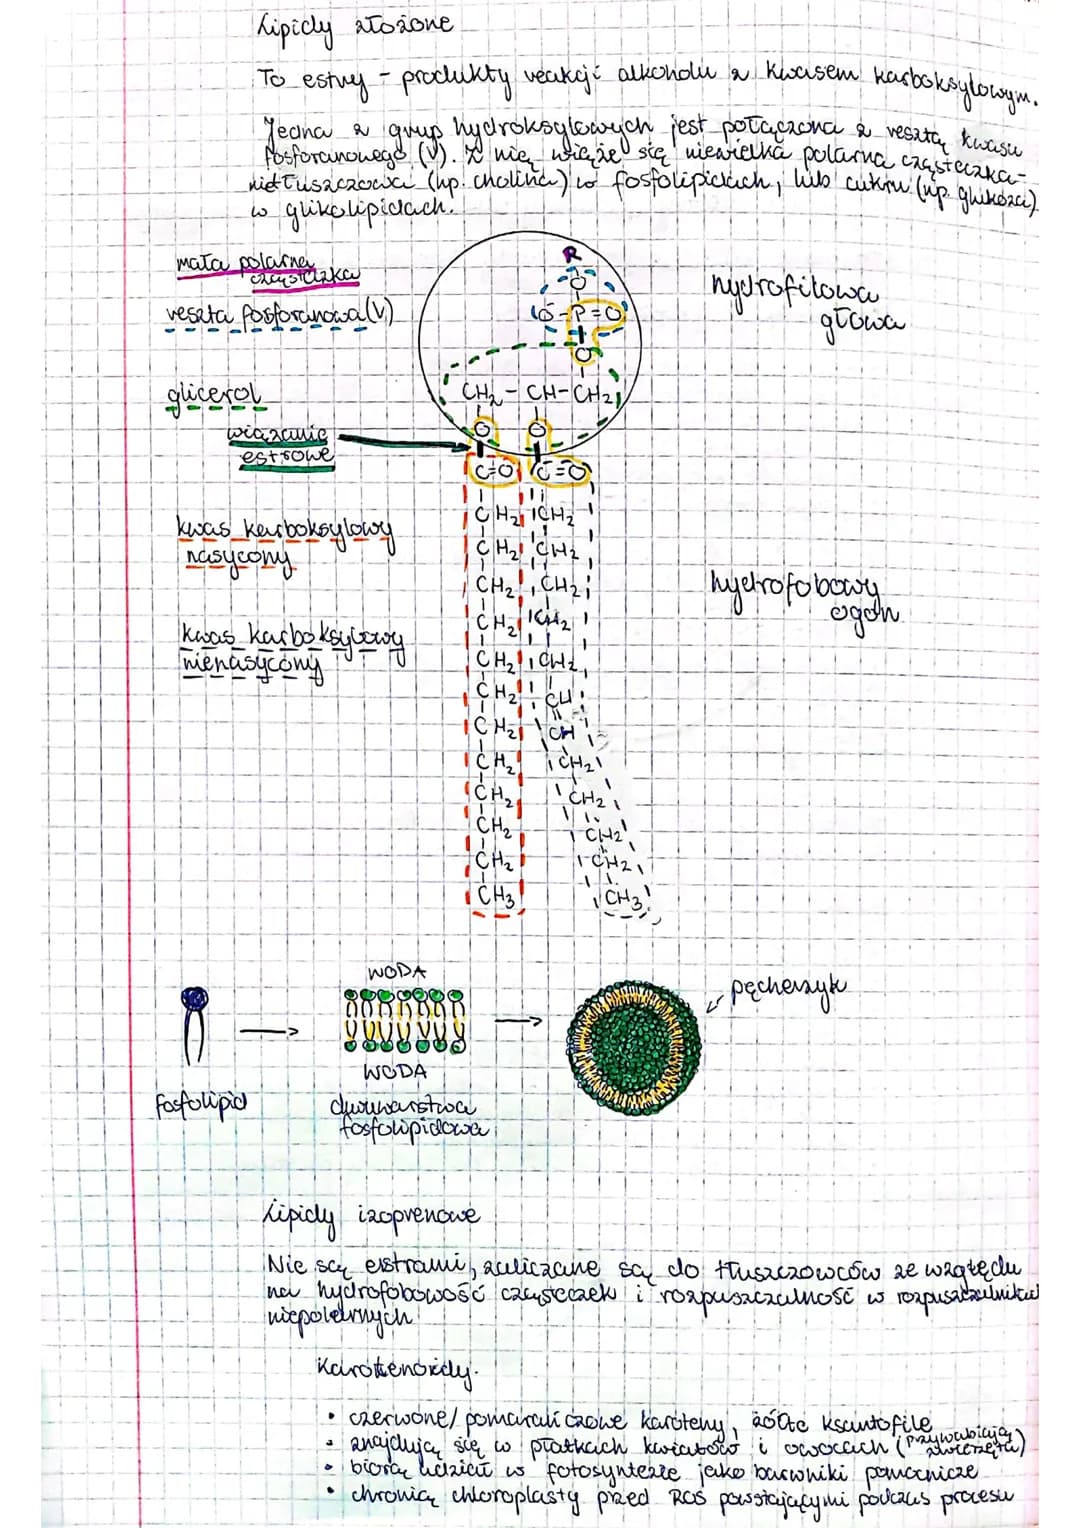 Lipidy złożone
To estry - produkty reakcji alkoholu z kwasem karboksylowym.
Jedna z grup hydroksylowych jest połączona z resztą kwasu
fosforanowego (V). Z nią wiąże się niewielka polarna cząsteczka-
nietłuszczowa (np. cholina) w fosfolipidach, lub cukru (np. glukoza)
w glikolipidach.
mała polarna
cząsteczka
reszta fosforanowa(V)
glicerol
wiązanie
estrowe
kwas karboksylowy
nasycony
kwas karboksylowy
nienasycony
R
O
O-P=O
O
CH2 - CH-CH2
O O
C=O C=O
CH2 CH2
CH2 CH2
CH2 CH2
CH2 CH2
CH2 CH2
CH2 CH
CH2 CH
CH2 CH2
CH2 CH2
CH2 CH2
CH2 CH2
CH3 CH3
hydrofilowa
głowa
hydrofobowy
ogon
WODA
WODA
fosfolipid
dwuwarstwa
fosfolipidowa
pęcherzyk
Lipidy izoprenowe
Nie są estrami, zaliczane są do tłuszczowców ze względu
na hydrofobowość cząsteczek i rozpuszczalność w rozpuszczalnikach
niepolarnych
Karotenoidy.
• czerwone/pomarańczowe karoteny, żółte ksantofile
• znajdują się w płatkach kwiatów i owocach (przywabiają zwierzęta)
• biorą udział w fotosyntezie jako barwniki pomocnicze
• chronią chloroplasty przed ROS powstającymi podczas procesu